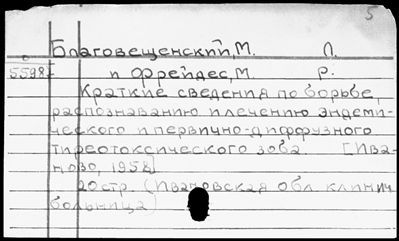 5
Благовещенский, М. Л.
5598. и Фрейдес, М. Р.
Краткие сведения по борьбе,
распознаванию и лечению эндеми-
ческого и первично-диффузного
тиреотоксического зоба. [Ива-
ново, 1958]
20 стр. (Ивановская обл. клинич
больница)